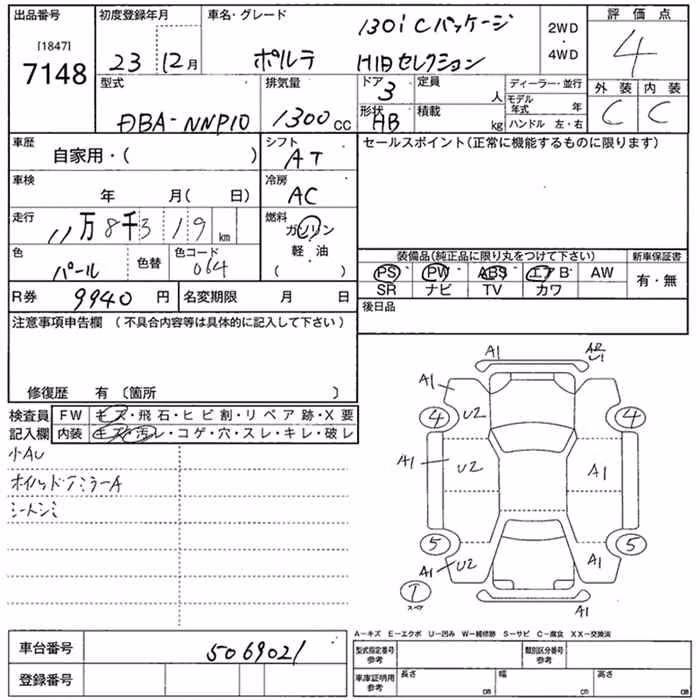 出品番号 初度登録年月 車名・グレード 130i Cパッケージ 2WD・4WD 評価点
[1847]
7148 23 12月 ポルテ HIDセレクション 4
型式 排気量 ドア 3 定員 人 ディーラー・並行 外装 内装
DBA-NNP10 1300cc 形状 HB 積載 kg モデル年式 年 C C
ハンドル 左・右
車歴 自家用・( ) シフト AT セールスポイント(正常に機能するものに限ります)
車検 年 月( 日) 冷房 AC
走行 11万8千319km 燃料 ガソリン
軽・油
( )
色 パール 色替 色コード 064 装備品(純正品に限り丸をつけて下さい) 新車保証書
PS PW ABS エアB AW 有・無
SR ナビ TV カワ
R券 9940円 名変期限 月 日 後日品
注意事項申告欄 (不具合内容等は具体的に記入して下さい)
修復歴 有 〔箇所 〕
検査員 FW キズ・飛石・ヒビ割・リペア跡・X要
記入欄 内装 キズ・汚レ・コゲ・穴・スレ・キレ・破レ
小AU
シートシミ
A1
A1 U2 4 4
A1 U2 A1
5 5
A1 U2 A1
T
スペア
A1
A-キズ E-エクボ U-凹み W-補修跡 S-サビ C-腐食 XX-交換済
車台番号 5069021 型式指定番号 参考 類別区分番号 参考
登録番号 車庫証明用 参考 長さ cm 幅 cm 高さ cm